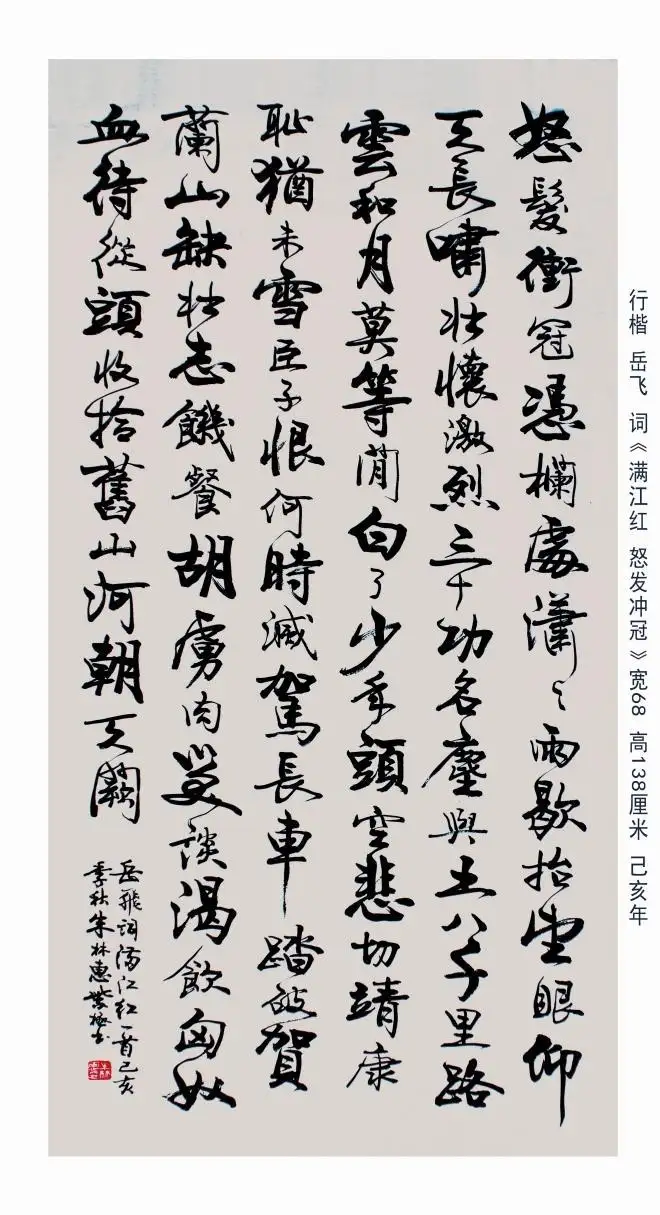 行楷 岳飞 词《满江红 怒发冲冠》宽68 高138厘米 己亥年
怒髮衝冠憑欄處瀟〻雨歇抬望眼仰
天長嘯壯懷激烈三十功名塵與土八千里路
雲和月莫等閒白了少年頭空悲切靖康
耻猶未雪臣子恨何時滅駕長車踏破賀
蘭山缺壯志饑餐胡虜肉笑談渴飲匈奴
血待從頭收拾舊山河朝天闕
岳飛词滿江红一首己亥
季秋朱林惠书